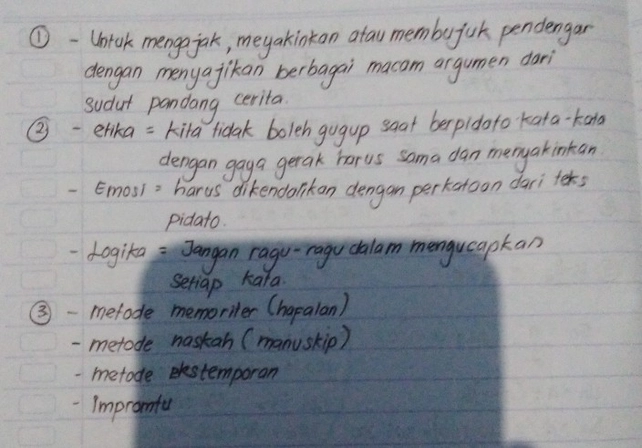 ① - Untuk mengajak, meyakinkan atau membujuk pendengar
dengan menyajikan berbagai macam argumen dari
sudut pandang cerita.
② - etika = kita tidak boleh gugup saat berpidato kata-kata
dengan gaya gerak harus sama dan menyakinkan
- Emosi = harus dikendalikan dengan perkataan dari teks
pidato.
- Logika = Jangan ragu-ragu dalam mengucapkan
setiap kata.
③ - metode memoriter (hapalan)
- metode naskah (manuskip)
- metode ekstemporan
- Impromtu